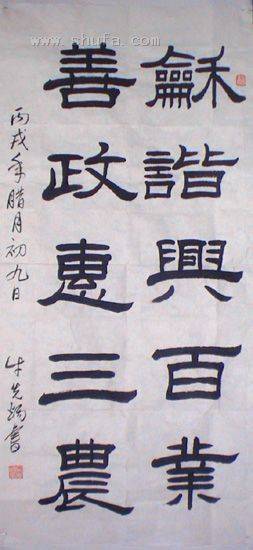 龢諧興百業
善政惠三農
丙戌年腊月初九日
牛先炳書
www.shufa.com